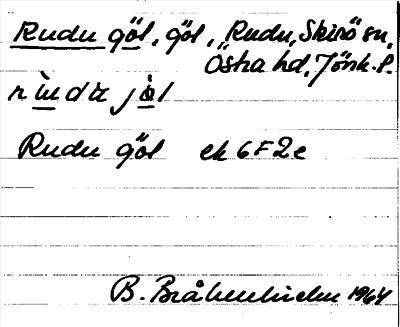 Rudu göl, göl, Rudu, Skirö sn,
Östra hd, Jönk. l.
Rudu göl ek 6F2e
B. 1964